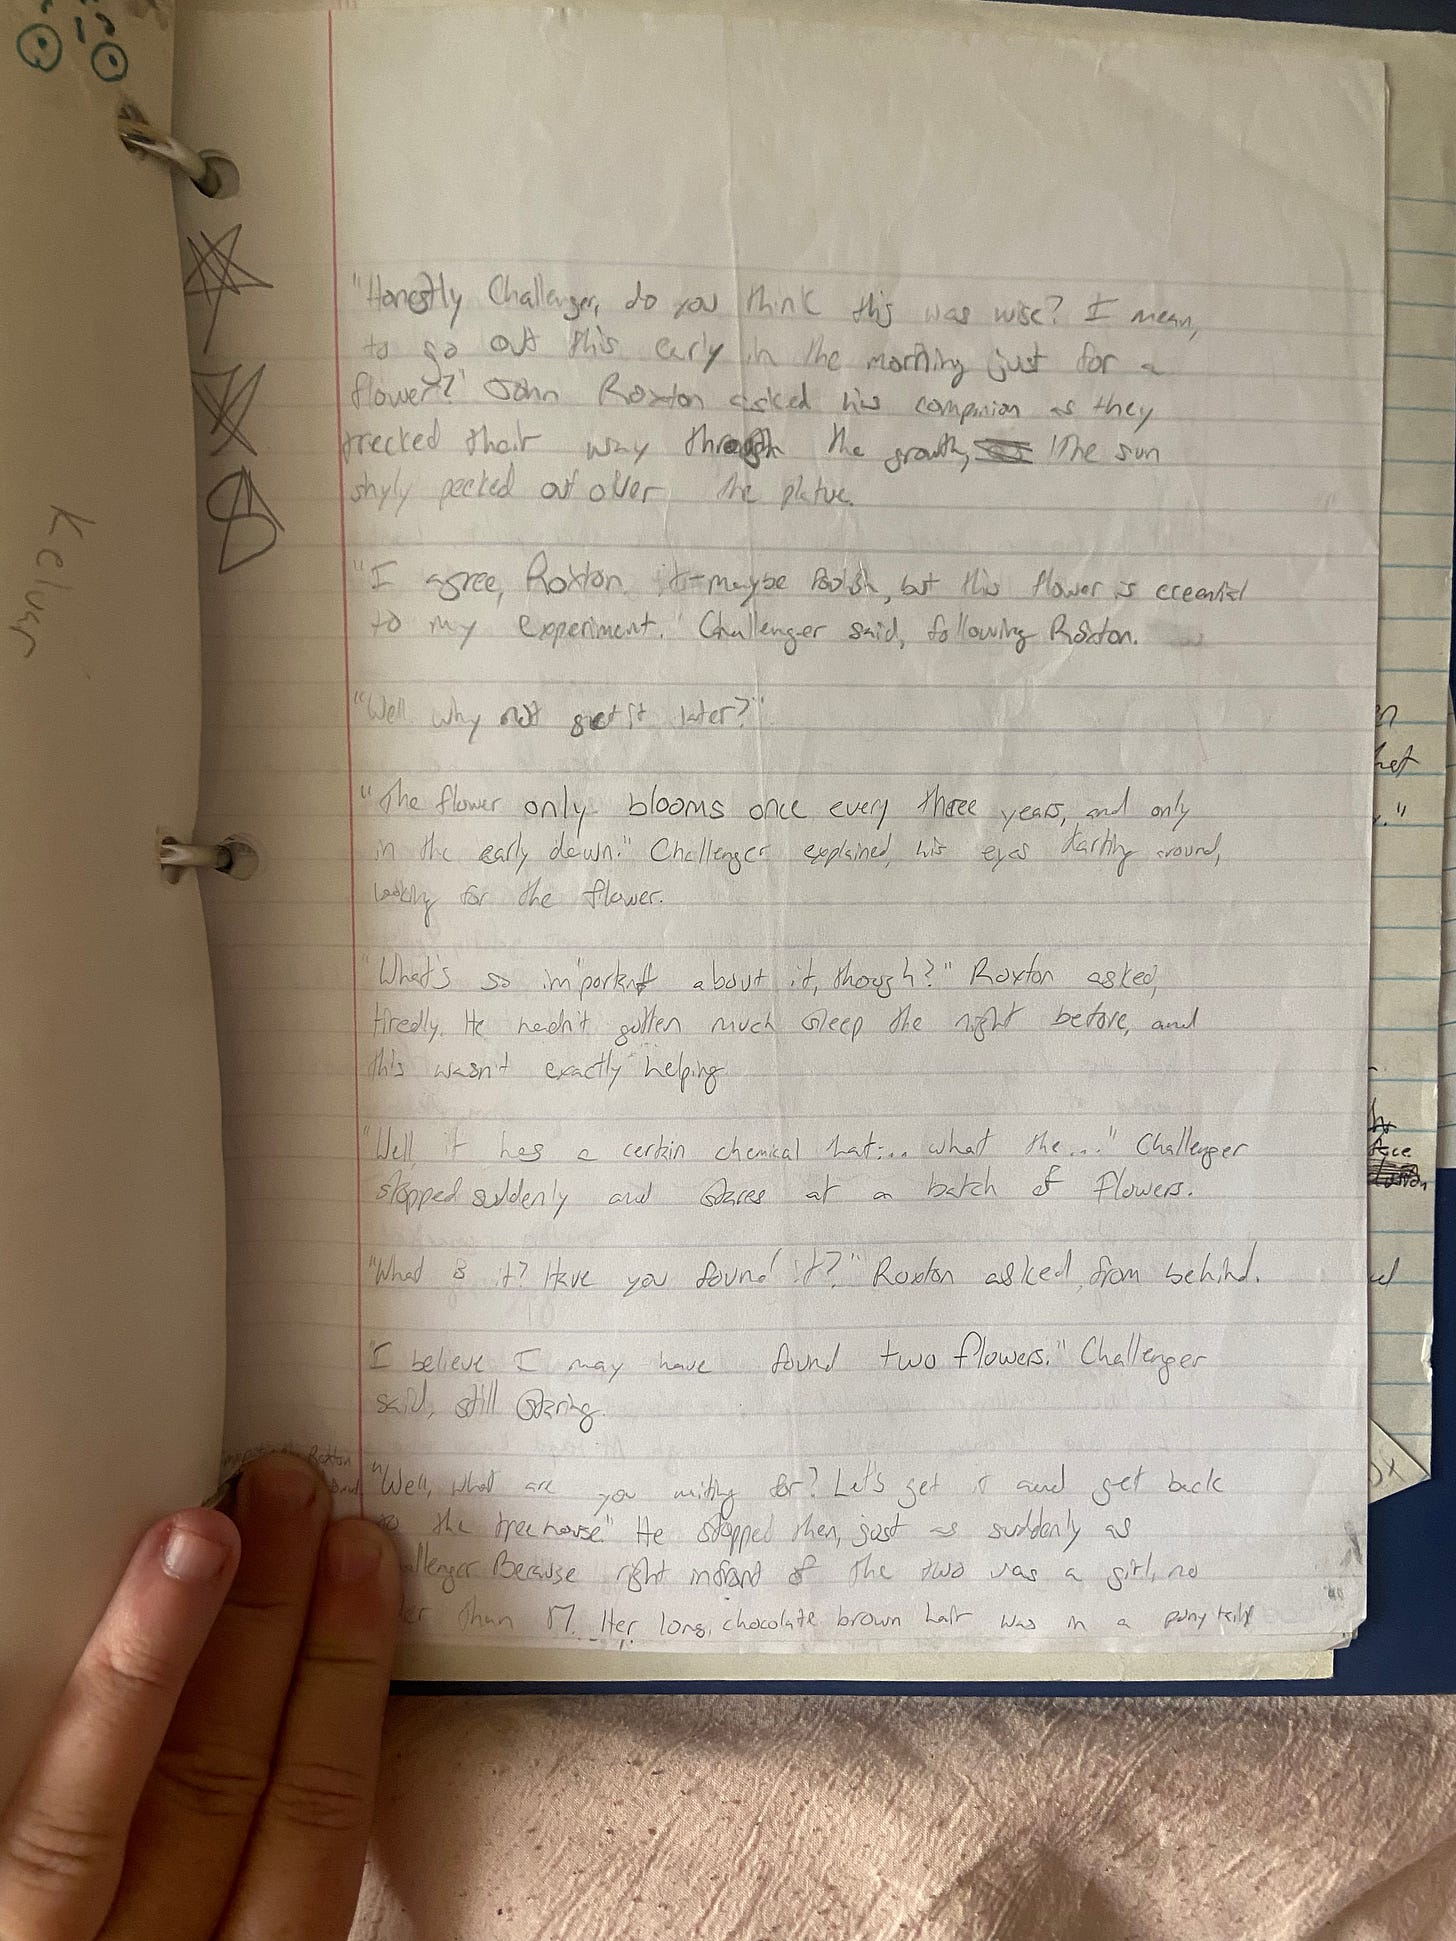 "Honestly Challenger, do you think this was wise? I mean,
to go out this early in the morning just for a
flower?" John Roxton asked his companion as they
trecked their way through the growth, The sun
shyly peeked out over the platue.
"I agree, Roxton. it maybe foolish, but this flower is
to my experiment." Challenger said, following Roxton.
"Well why not get it later?"
"The flower only blooms once every three years, and only
in the early dawn." Challenger explained, his eyes darting around,
looking for the flower.
"What's so important about it, though?" Roxton asked,
tiredly. He hadn't gotten much sleep the night before, and
this wasn't exactly helping.
"Well, it has a certain chemical that... what the..." Challenger
stopped suddenly and stares at a batch of flowers.
"What is it? Have you found it?" Roxton asked from behind.
"I believe I may have found two flowers." Challenger
said, still staring.
"Well, what are you waiting for? Let's get it and get back
to the treehouse." He stopped then, just as suddenly as
allenger Because right infront of the two was a girl, no
der than 17. Her long, chocolate brown hair was in a ponytail
Kelvar
Roxton